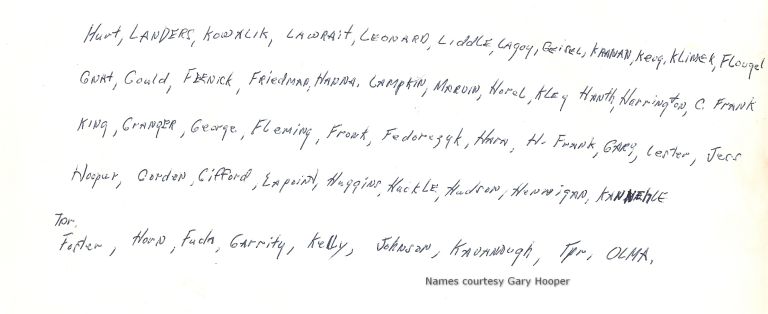 Hurt, LANDERS, KOWALIK, LAWRAIT, LEONARD, LIDDLE, Lagoy, Geisel, KAANAN, Keug, KLIMEK, Flougel
GNAT, Gould, FLENICK, FriedMAN, HANNA, LAMPKIN, MARVIN, Horel, KLEY HANTH, Harrington, C. FRANK
KING, GRANGER, George, Fleming, Frank, Fedorczyk, HARA, H. FRANK, GARY, Lester, Jess
Hooper, Gordon, Gifford, Lapoint, Huggins, Huckle, Hudson, Hennigan, KANNEHLE
Tpr.
Foster, Horn, Fuda, Garrity, Kelly, Johnson, KAVANOUGH, Tpr. OLMA.
Names courtesy Gary Hooper